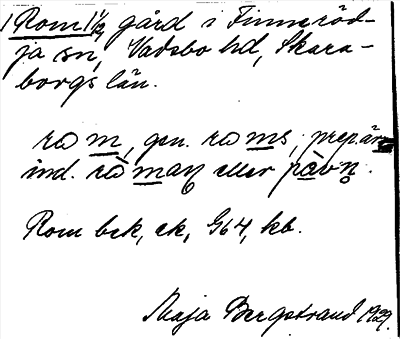 Rom 1 1/2, gård i Finneröd-
ja sn, Vadsbo hd, Skara-
borgs län.
ram, gen. rams, prep. är
ind. raman eller pàvn.
Rom bek, ek, G64, kb.
Maja Bergstrand 1929.